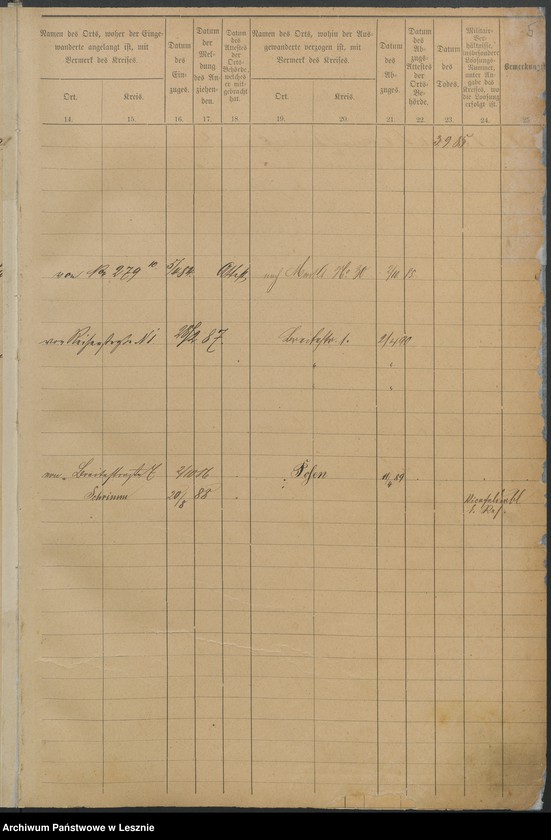 5
Namen des Orts, woher der Einge-
wanderte angelangt ist, mit
Vermerk des Kreises.
Ort.
Kreis.
Datum
des
Ein-
zuges.
Datum
der
Mel-
dung
des An-
ziehen-
den.
Datum
des
Attestes
der
Orts-
Behörde,
welches
er mit-
gebracht
hat.
Namen des Orts, wohin der Aus-
gewanderte verzogen ist, mit
Vermerk des Kreises.
Ort.
Kreis.
Datum
des
Ab-
zuges.
Datum
des
Ab-
zugs-
Attestes
der
Orts-
Be-
hörde.
Datum
des
Todes.
Militair-
Ver-
hältnisse,
insbesondere
Loosungs-
Nummer,
unter An-
gabe des
Kreises, wo
die Loosung
erfolgt ist.
Bemerkung
14.
15.
16.
17.
18.
19.
20.
21.
22.
23.
24.
25
3 9 85
von No 279
Attest
nach Markt No
87
Breitestr. 1.
2/4 90
von Breitestraße 7
2/10 86
Posen
11/4 89
Schrimm
20/8 88
Archiwum Państwowe w Lesznie